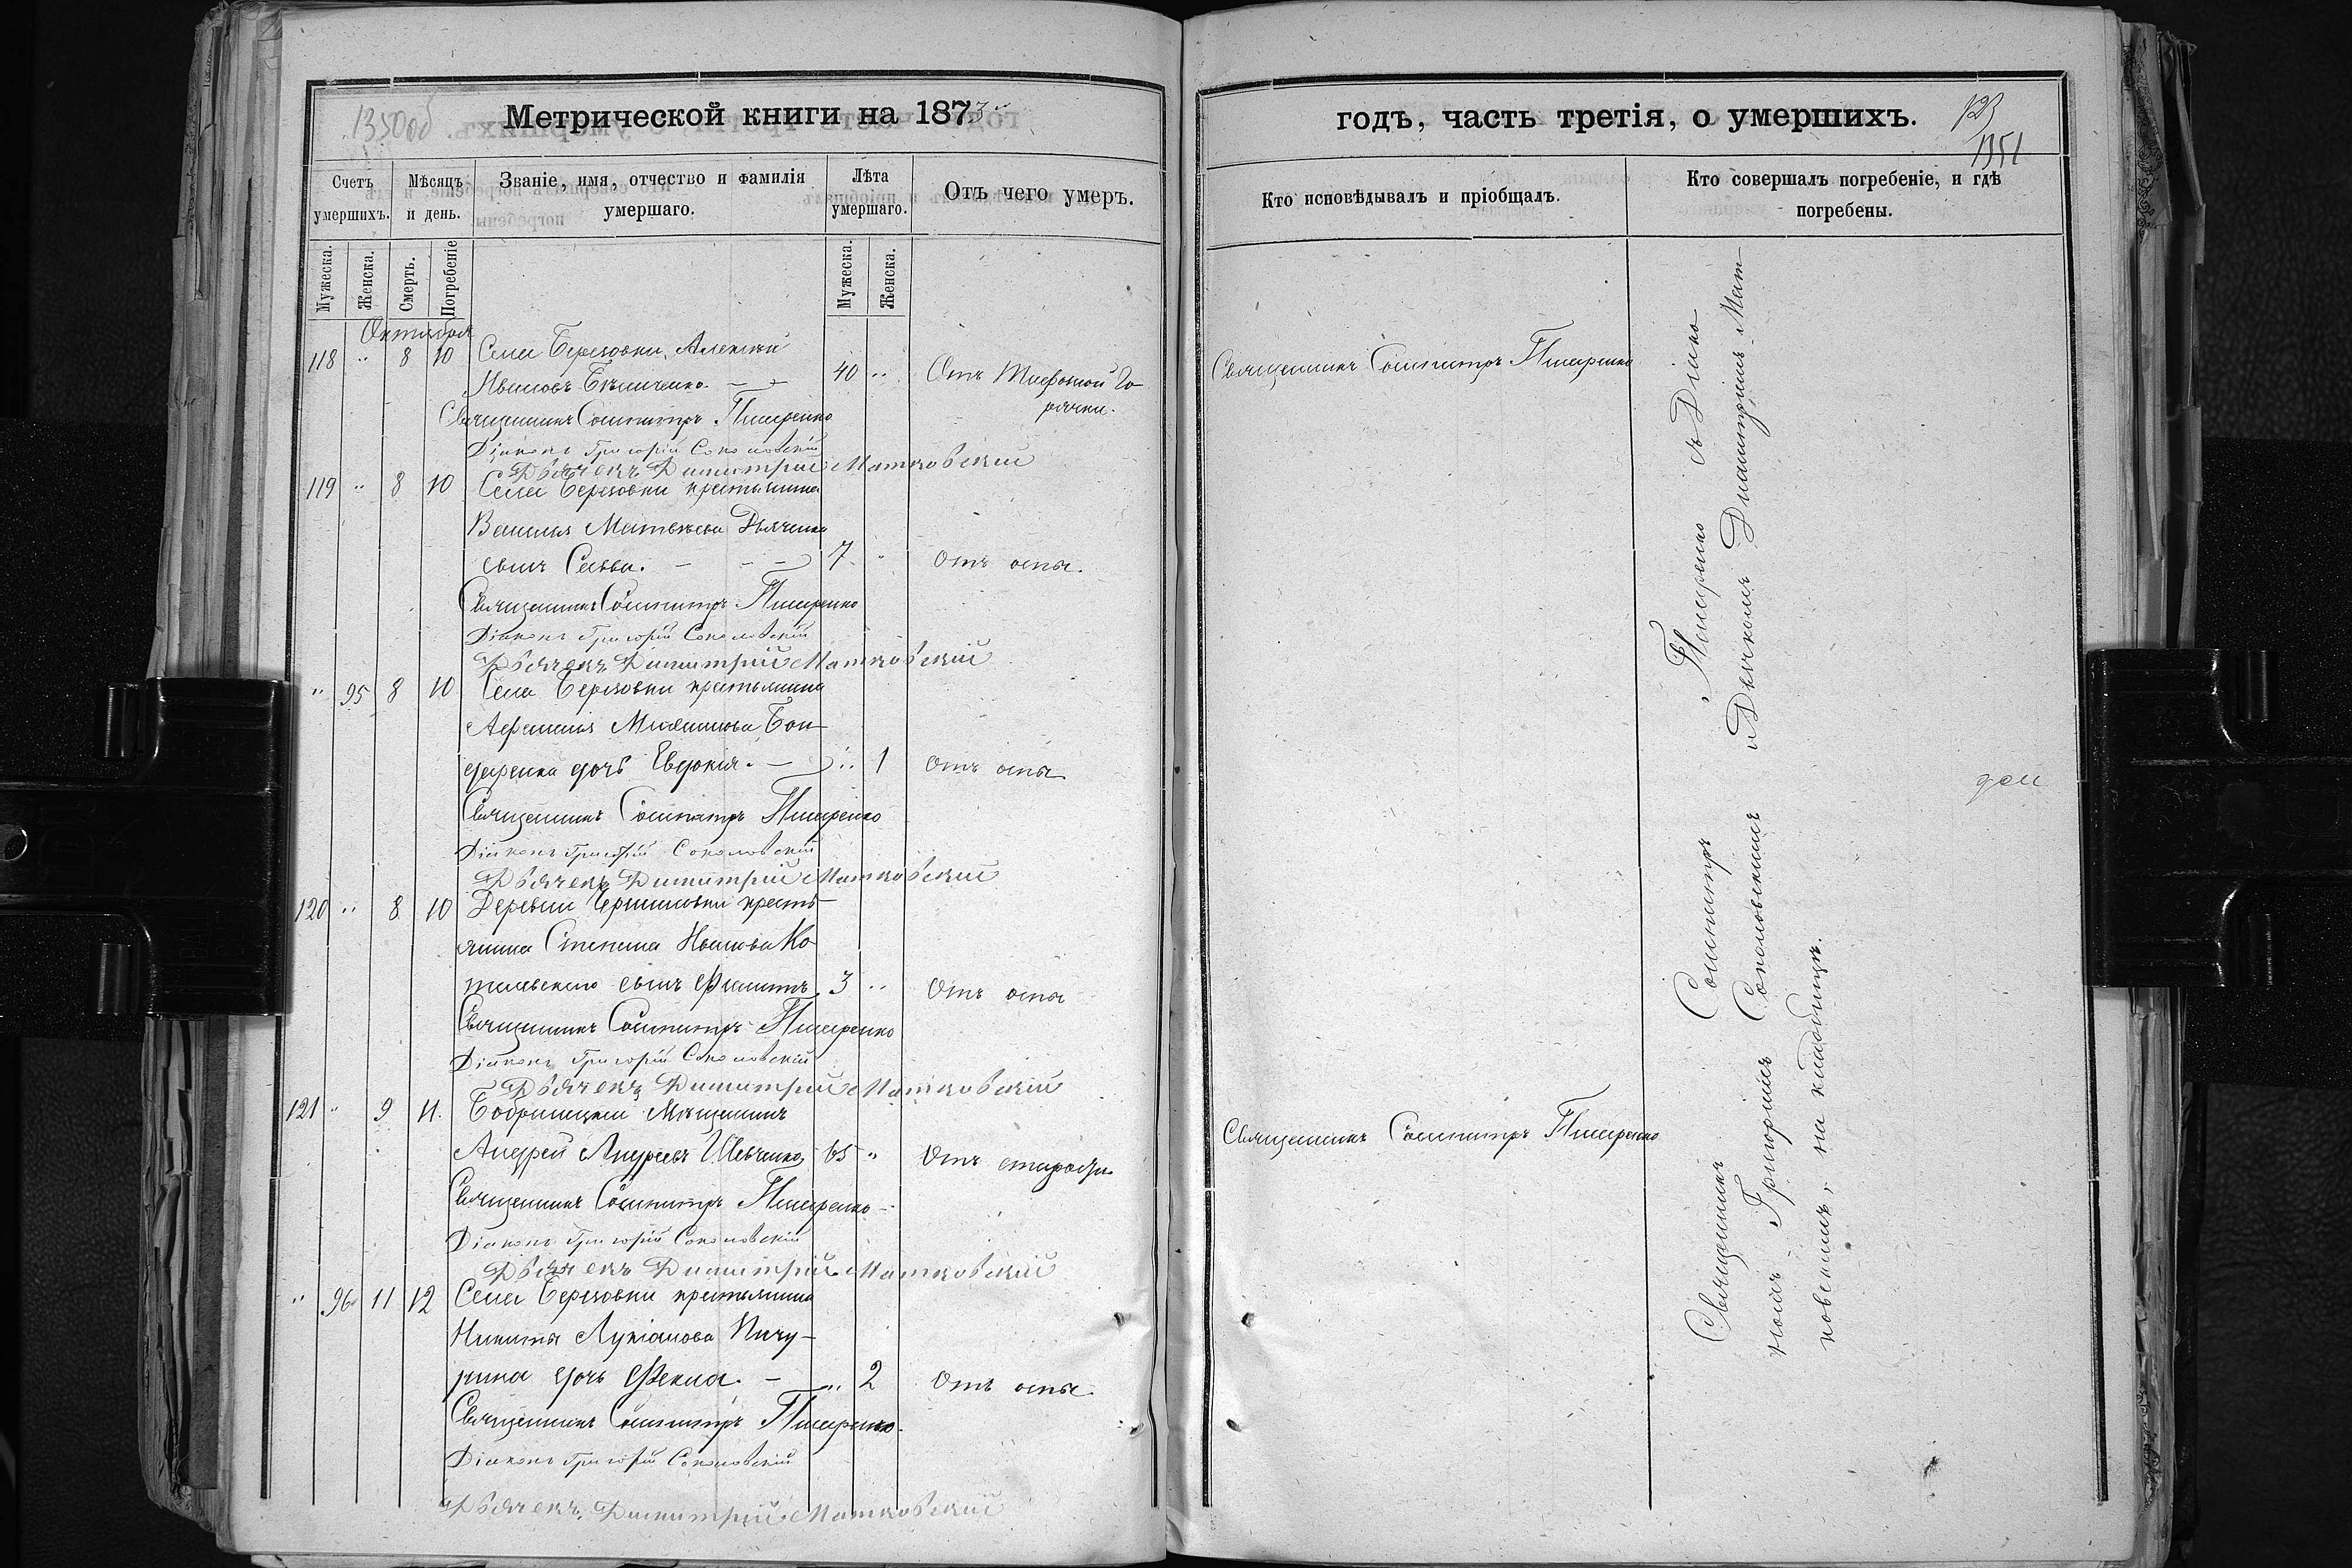 1350об
Метрической книги на 1873
Счетъ умершихъ.
Мѣсяцъ и день.
Званіе, имя, отчество и фамилія умершаго.
Лѣта умершаго.
Отъ чего умеръ.
Мужеска.
Женска.
Смерть.
Погребеніе
Мужеска.
Женска.
Октября
118 " 8 10 Села Березовки, Алексѣй
Ивановъ 40 " Отъ Тифозной Го-
рячки.
Священникъ Сосипатръ Писаренко
Діаконъ Григорій Соколовскій
Дьячекъ Димитрій Матковскій
119 " 8 10 Села Березовки крестьянина
Василія Матвѣева Дьяченка
сынъ Савва. 7 " Отъ оспы.
Священникъ Сосипатръ Писаренко
Діаконъ Григорій Соколовскій
Дьячекъ Димитрій Матковскій
" 95 8 10 Села Березовки крестьянина
Афанасія Бон-
даренка дочь Евдокія. " 1 Отъ оспы
Священникъ Сосипатръ Писаренко
Діаконъ Григорій Соколовскій
Дьячекъ Димитрій Матковскій
120 " 8 10 Деревни крестья-
янина Степана Иванова Ко-
сынъ Филиппъ. 3 " Отъ оспы
Священникъ Сосипатръ Писаренко
Діаконъ Григорій Соколовскій
Дьячекъ Димитрій Матковскій
121 " 9 11. Бобринецкій Мѣщанинъ
Андрей Андреевъ Шевченко 65 " Отъ старости
Священникъ Сосипатръ Писаренко
Діаконъ Григорій Соколовскій
Дьячекъ Димитрій Матковскій
" 96 11 12 Села Березовки крестьянина
Никиты Лукіанова Пичу-
рина дочь Фекла. " 2 Отъ оспы.
Священникъ Сосипатръ Писаренко.
Діаконъ Григорій Соколовскій
Дьячекъ Димитрій Матковскій
годъ, часть третія, о умершихъ.
123
1351
Кто исповѣдывалъ и пріобщалъ.
Кто совершалъ погребеніе, и гдѣ погребены.
Священникъ Сосипатръ Писаренко
Священникъ Сосипатръ Писаренко
Священникъ Сосипатръ Писаренко съ Діако-
номъ Григоріемъ Соколовскимъ и Дьячкомъ Димитріемъ Мат-
ковскимъ, на кладбищѣ.